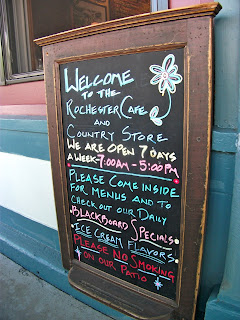 Welcome
to the
Rochester Cafe
and
Country Store
We are open 7 days
a week - 7:00AM - 5:00PM
Please come inside
for menus and to
check out our daily
Blackboard Specials.
Ice Cream Flavors.
Please No Smoking
on our patio